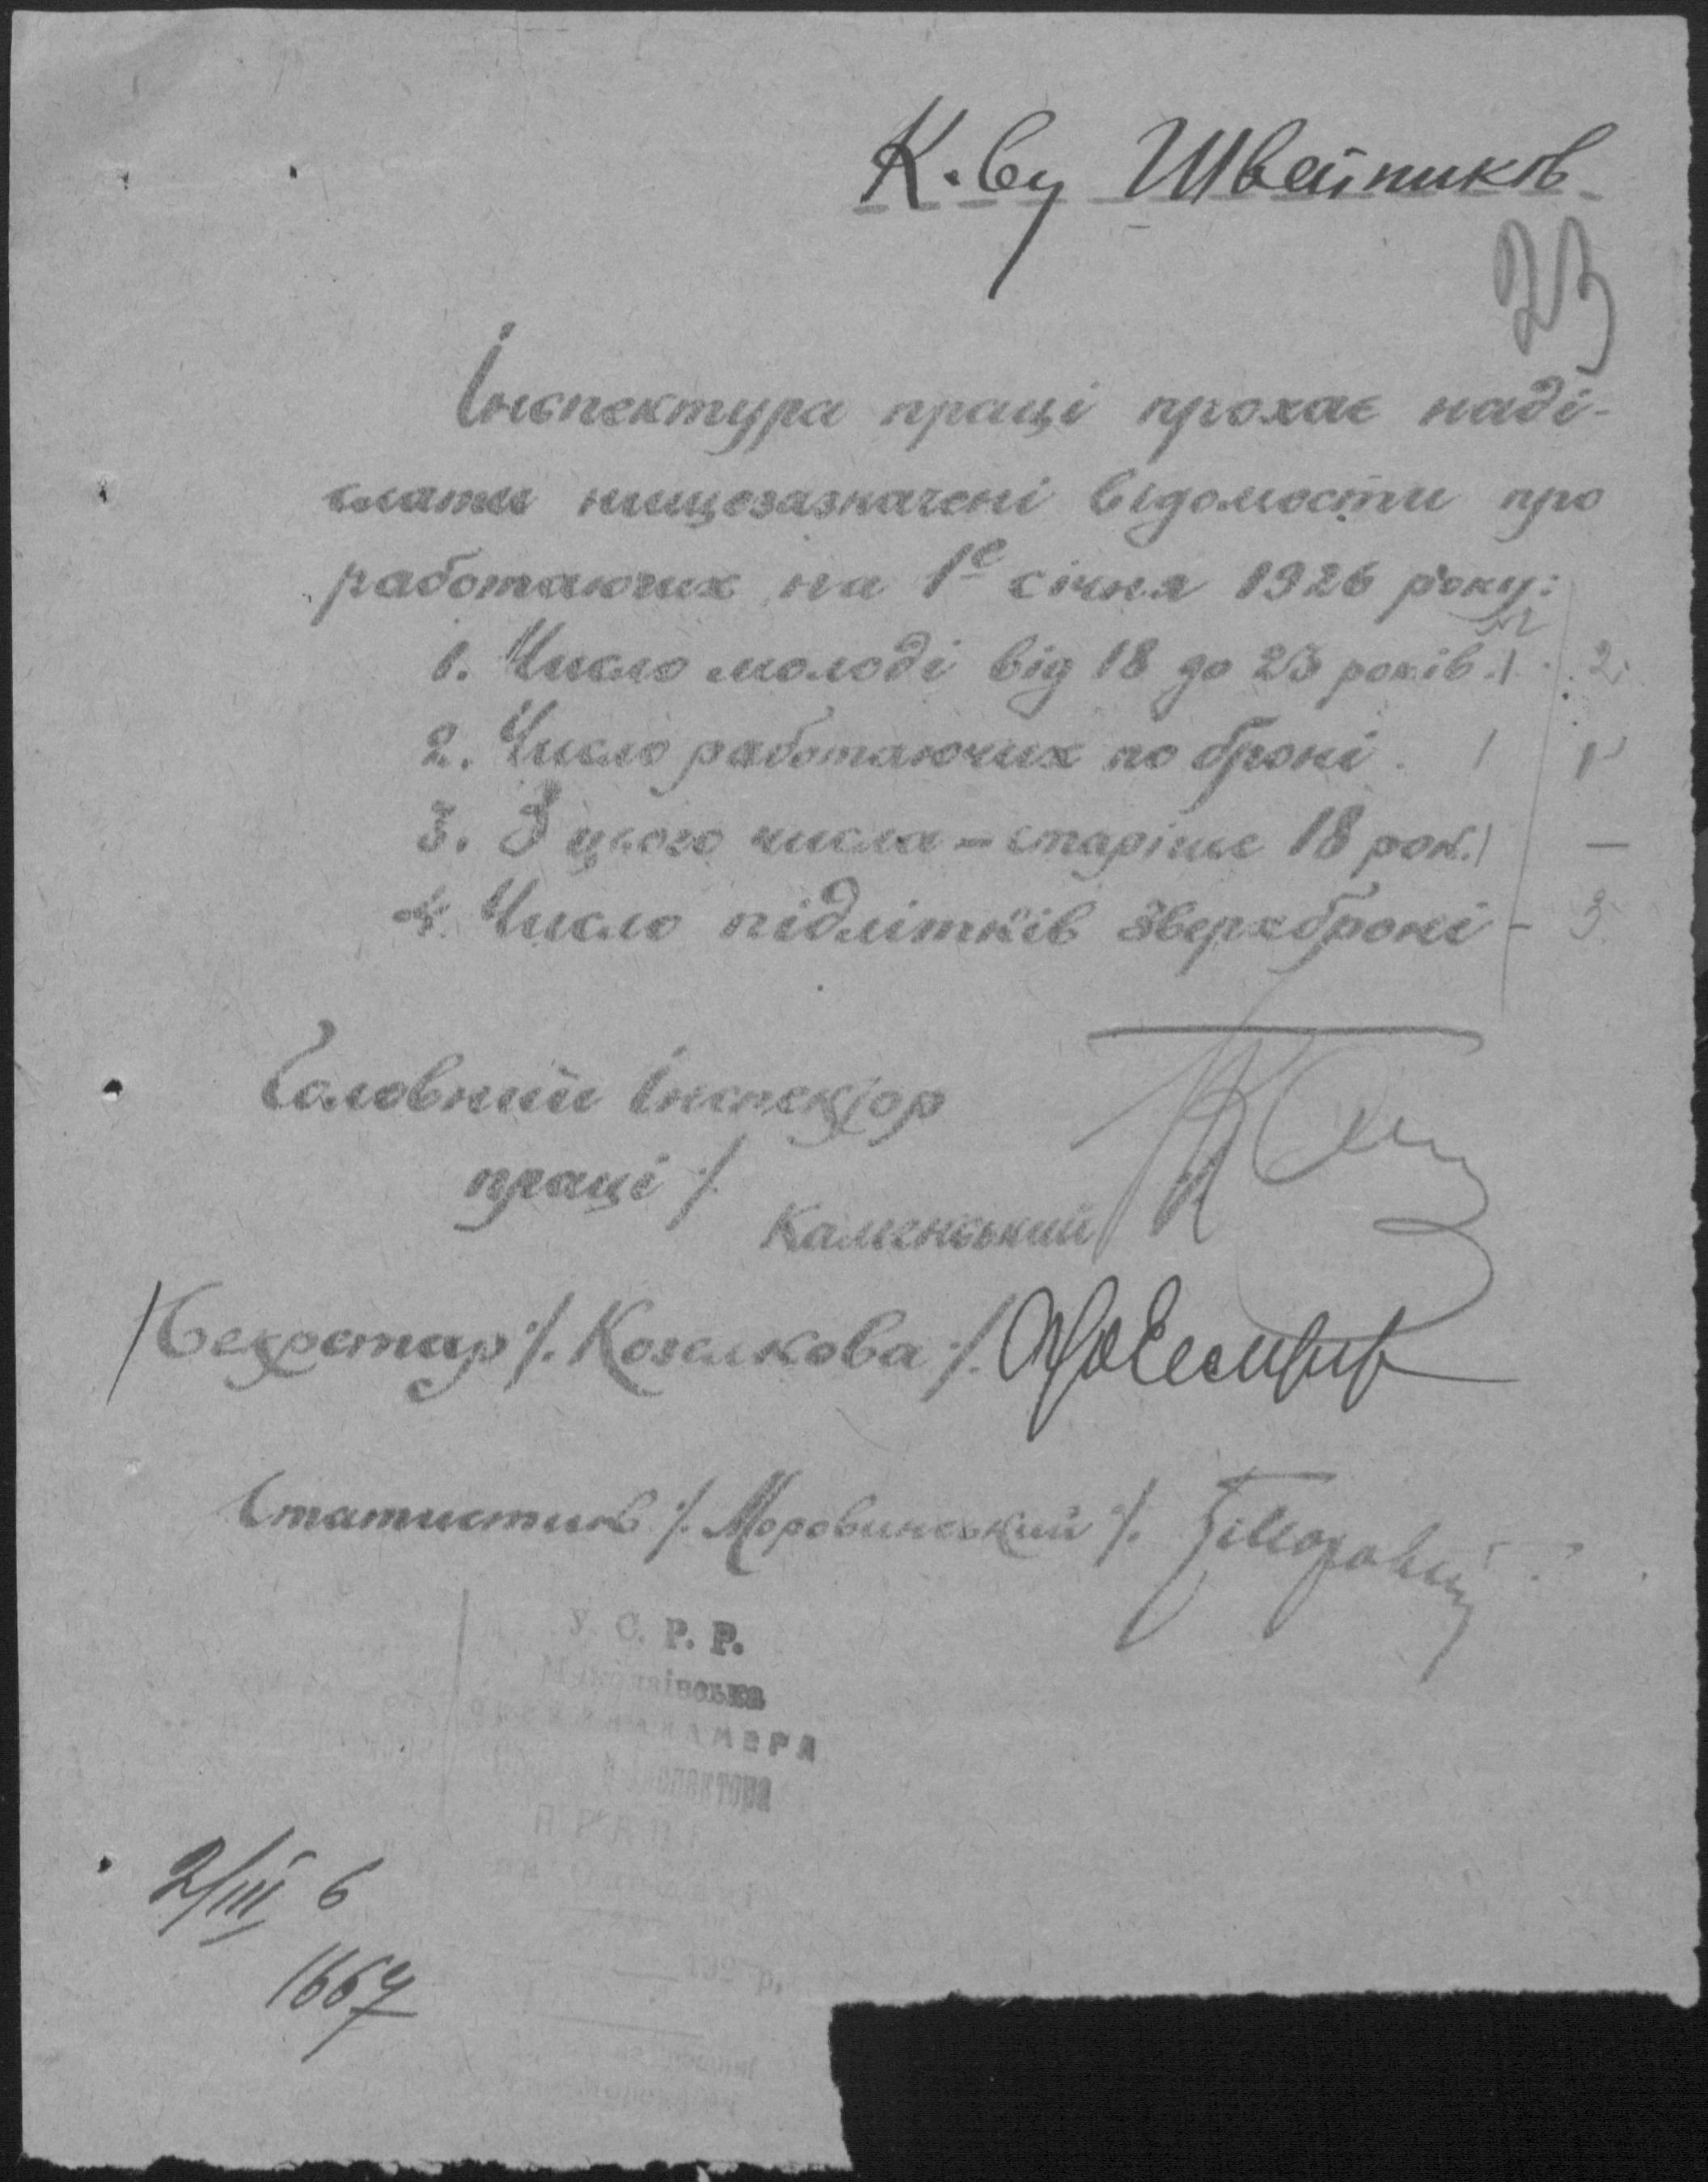 К-ву Швейников
23
Інспектура праці прохає наді-
слати нищезазначені відомости про
работаючих на 1е січня 1926 року:
1. Число молоді від 18 до 23 років. 2
2. Число работаючих по броні. 1
3. З цього числа - старіше 18 рок. —
4. Число підлітків зверх броні - 3
Головний Інспектор
праці /.
Каменський
Секретар /. Козлкова /.
Статистик /. Моровинський /.
У. С. Р. Р.
Миколаївська
КАМЕРА
Інспектора
ПРАЦІ
192 р.
2/III 6
1667